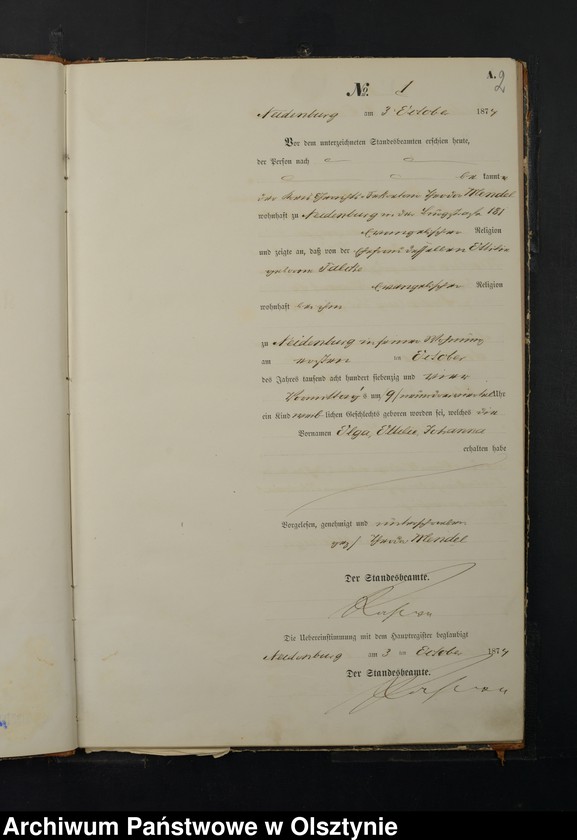 A. 2
No. 1
Neidenburg am 3 October 1874
Vor dem unterzeichneten Standesbeamten erschien heute,
der Person nach
be kannt
der Kreis Gerichts Sekretair Theodor Mendel
wohnhaft zu Neidenburg in der Burgstraße 181
evangelischer Religion
und zeigte an, daß von der Ehefrau desselben
geborene
evangelischer Religion
wohnhaft bei ihm
zu Neidenburg in seiner Wohnung
am ersten October
des Jahres tausend acht hundert siebenzig und vier
Vormittags um 9 Uhr
ein Kind weib lichen Geschlechts geboren worden sei, welches die
Vornamen Johanna
erhalten habe
Vorgelesen, genehmigt und unterschrieben
gez/ Theodor Mendel
Der Standesbeamte.
Die Uebereinstimmung mit dem Hauptregister beglaubigt
Neidenburg am 3 October 1874
Der Standesbeamte.
Archiwum Państwowe w Olsztynie